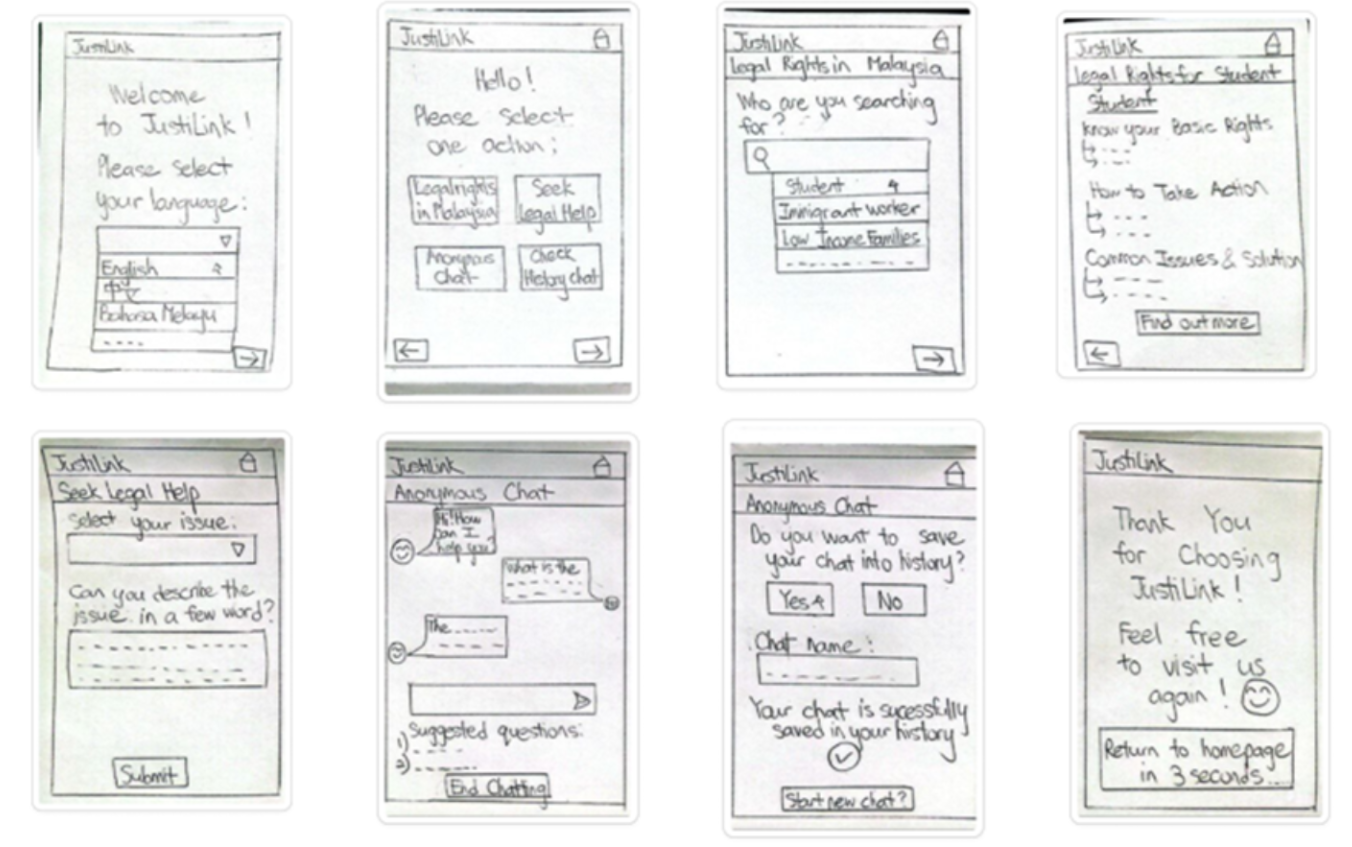 JustiLink
Welcome
to JustiLink!
Please Select
your language:
English
中文
Bahasa Melayu
JustiLink
Hello!
Please Select
one action:
Legal rights
in Malaysia
Seek
Legal Help
Anonymous
Chat
Check
History chat
JustiLink
Legal Rights in Malaysia
Who are you searching
for?
Student
Immigrant worker
Low Income Families
JustiLink
Legal Rights for Student
Student
Know your Basic Rights
How to Take Action
Common Issues & Solution
Find out more
JustiLink
Seek Legal Help
Select your issue:
Can you describe the
issue in a few word?
Submit
JustiLink
Anonymous Chat
Hi! How
can I
help you?
What is the
The
Suggested questions:
1)
2)
End Chatting
JustiLink
Anonymous Chat
Do you want to save
your chat into history?
Yes
No
Chat name:
Your chat is sucessfully
saved in your history
Start new chat?
JustiLink
Thank You
for Choosing
JustiLink!
Feel free
to visit us
again!
Return to homepage
in 3 seconds...